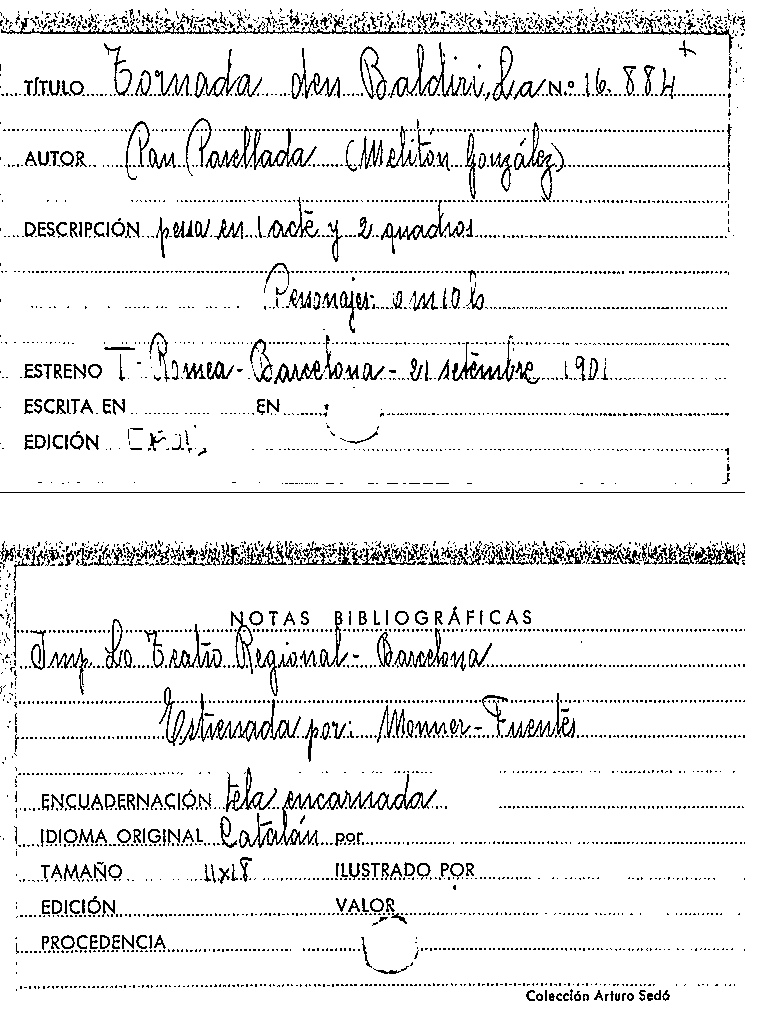 TÍTULO Tornada den Baldiri, La N.º 16.884
AUTOR Pau Parellada (Melitón González)
DESCRIPCIÓN pessa en 1 acte y 2 quadros
Personajes: 0 m 10 h
ESTRENO T- Romea - Barcelona - 21 setembre 1901
ESCRITA EN EN
EDICIÓN
NOTAS BIBLIOGRÁFICAS
Imp. Lo Teatro Regional - Barcelona
Estrenada por: Monner - Fuentes
ENCUADERNACIÓN tela encarnada
IDIOMA ORIGINAL Catalán por
TAMAÑO 11x18 ILUSTRADO POR
EDICIÓN VALOR
PROCEDENCIA
Colección Arturo Sedó